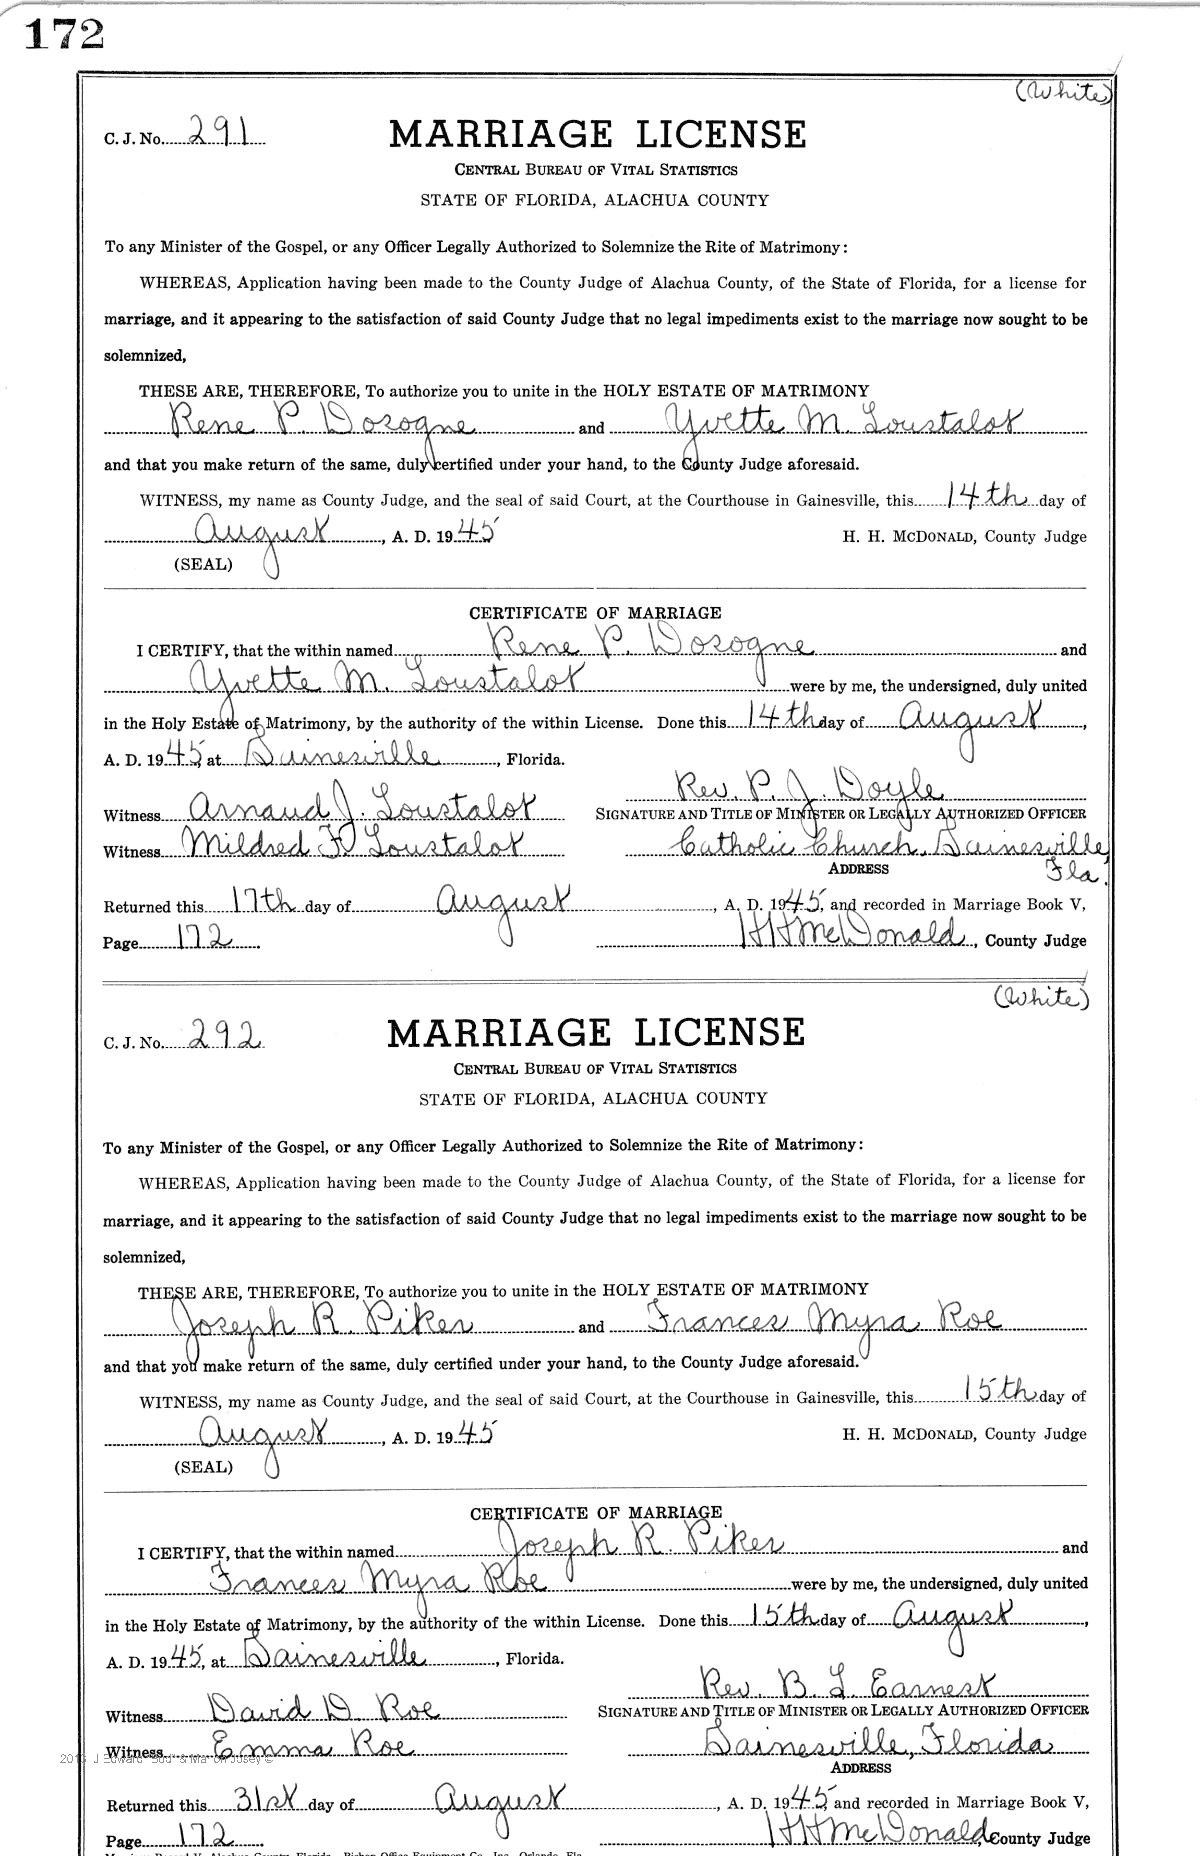 172
(White)
C. J. No. 291
MARRIAGE LICENSE
CENTRAL BUREAU OF VITAL STATISTICS
STATE OF FLORIDA, ALACHUA COUNTY
To any Minister of the Gospel, or any Officer Legally Authorized to Solemnize the Rite of Matrimony:
WHEREAS, Application having been made to the County Judge of Alachua County, of the State of Florida, for a license for
marriage, and it appearing to the satisfaction of said County Judge that no legal impediments exist to the marriage now sought to be
solemnized,
THESE ARE, THEREFORE, To authorize you to unite in the HOLY ESTATE OF MATRIMONY
Rene P. Dosogne and Yvette M. Loustalot
and that you make return of the same, duly certified under your hand, to the County Judge aforesaid.
WITNESS, my name as County Judge, and the seal of said Court, at the Courthouse in Gainesville, this 14th day of
August, A. D. 1945 H. H. MCDONALD, County Judge
(SEAL)
CERTIFICATE OF MARRIAGE
I CERTIFY, that the within named Rene P. Dosogne and
Yvette M. Loustalot were by me, the undersigned, duly united
in the Holy Estate of Matrimony, by the authority of the within License. Done this 14th day of August,
A. D. 1945, at Gainesville, Florida.
Rev. P. J. Doyle
Witness Arnaud J. Loustalot SIGNATURE AND TITLE OF MINISTER OR LEGALLY AUTHORIZED OFFICER
Witness Mildred F. Loustalot Catholic Church, Gainesville,
ADDRESS Fla.
Returned this 17th day of August, A. D. 1945, and recorded in Marriage Book V,
Page 172 HHMcDonald, County Judge
(White)
C. J. No. 292
MARRIAGE LICENSE
CENTRAL BUREAU OF VITAL STATISTICS
STATE OF FLORIDA, ALACHUA COUNTY
To any Minister of the Gospel, or any Officer Legally Authorized to Solemnize the Rite of Matrimony:
WHEREAS, Application having been made to the County Judge of Alachua County, of the State of Florida, for a license for
marriage, and it appearing to the satisfaction of said County Judge that no legal impediments exist to the marriage now sought to be
solemnized,
THESE ARE, THEREFORE, To authorize you to unite in the HOLY ESTATE OF MATRIMONY
Joseph R. Piker and Frances Myra Roe
and that you make return of the same, duly certified under your hand, to the County Judge aforesaid.
WITNESS, my name as County Judge, and the seal of said Court, at the Courthouse in Gainesville, this 15th day of
August, A. D. 1945 H. H. MCDONALD, County Judge
(SEAL)
CERTIFICATE OF MARRIAGE
I CERTIFY, that the within named Joseph R. Piker and
Frances Myra Roe were by me, the undersigned, duly united
in the Holy Estate of Matrimony, by the authority of the within License. Done this 15th day of August,
A. D. 1945, at Gainesville, Florida.
Rev. B. L Earnest
Witness David D. Roe SIGNATURE AND TITLE OF MINISTER OR LEGALLY AUTHORIZED OFFICER
Witness Emma Roe Gainesville, Florida
ADDRESS
Returned this 31st day of August, A. D. 1945, and recorded in Marriage Book V,
Page 172 HHMcDonald, County Judge